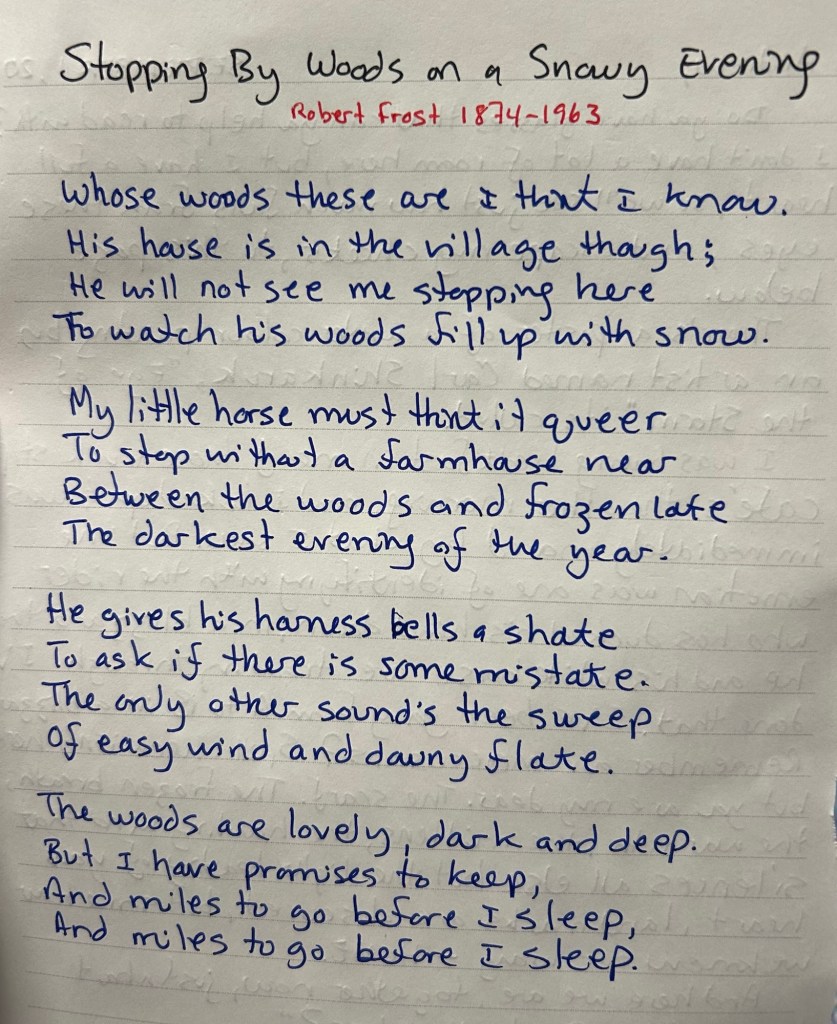 Stopping By Woods on a Snowy Evening
Robert Frost 1874-1963
Whose woods these are I think I know.
His house is in the village though;
He will not see me stopping here
To watch his woods fill up with snow.
My little horse must think it queer
To stop without a farmhouse near
Between the woods and frozen lake
The darkest evening of the year.
He gives his harness bells a shake
To ask if there is some mistake.
The only other sound's the sweep
Of easy wind and downy flake.
The woods are lovely, dark and deep.
But I have promises to keep,
And miles to go before I sleep,
And miles to go before I sleep.